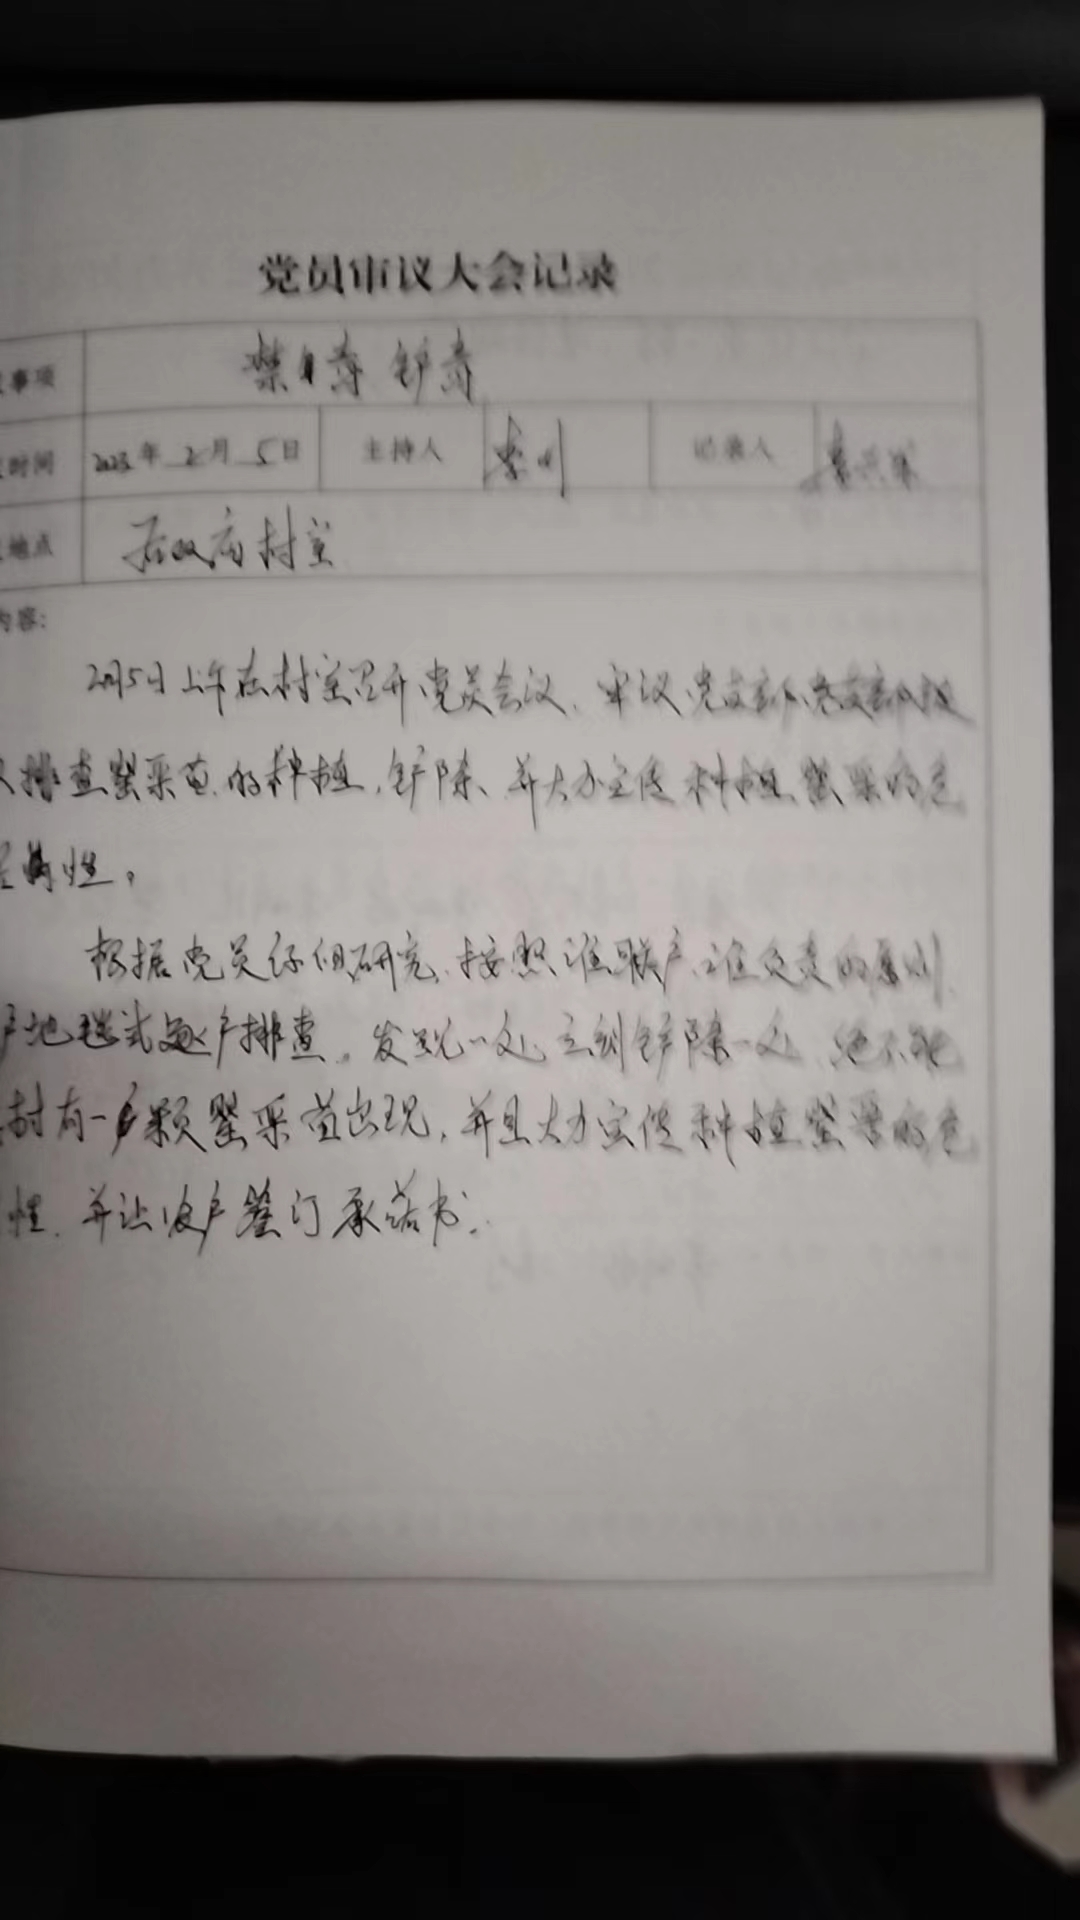 党员审议大会记录
事项 禁毒 铲毒
时间 2023年 2月 5日 主持人 李川 记录人
地点 后双庙村室
内容:
2月5日上午在村室召开党员会议、审议党支部党支部
排查罂粟苗的种植,铲除、并大力宣传种植罂粟的危
性。
根据党员仔细研究、按照谁联户、谁负责的原则、
户地毯式逐户排查。发现一处立刻铲除一处、绝不能
村有一颗罂粟苗出现,并且大力宣传种植罂粟的危
性、并让农户签订承诺书。